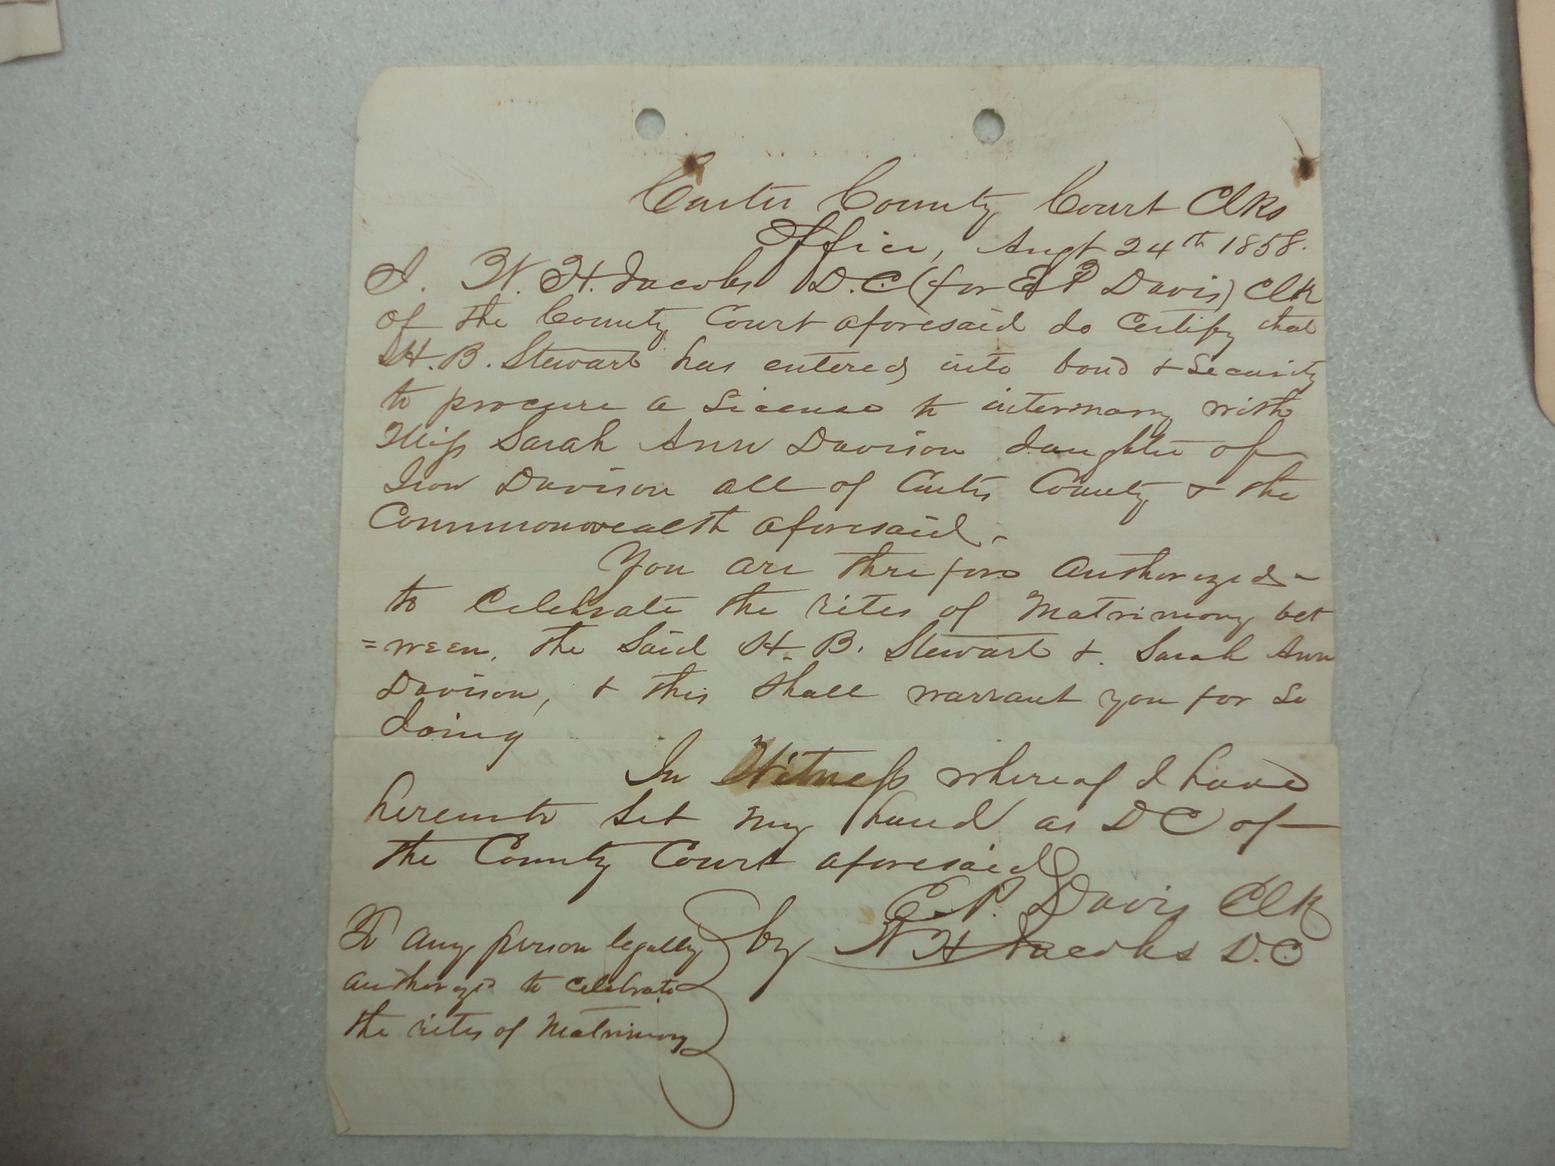 Carter County Court Clks
Office, Augt 24th 1858.
I. W. H. Jacobs D.C (for E P Davis) Clk
of the County Court aforesaid do Certify that
H. B. Stewart has entered into bond & Security
to procure a License to intermarry with
Miss Sarah Ann Davison daughter of
Davison all of Carter County & the
Commonwealth aforesaid.
You are therefore authorized
to Celebrate the rites of Matrimony bet
=ween. the Said H. B. Stewart &. Sarah Ann
Davison, & this shall warrant you for So
doing
In Witness whereof I have
hereunto Set my hand as D C of
the County Court aforesaid
E. P. Davis Clk
by W H Jacobs D.C
To any person legally
authorized to celebrate
the rites of Matrimony